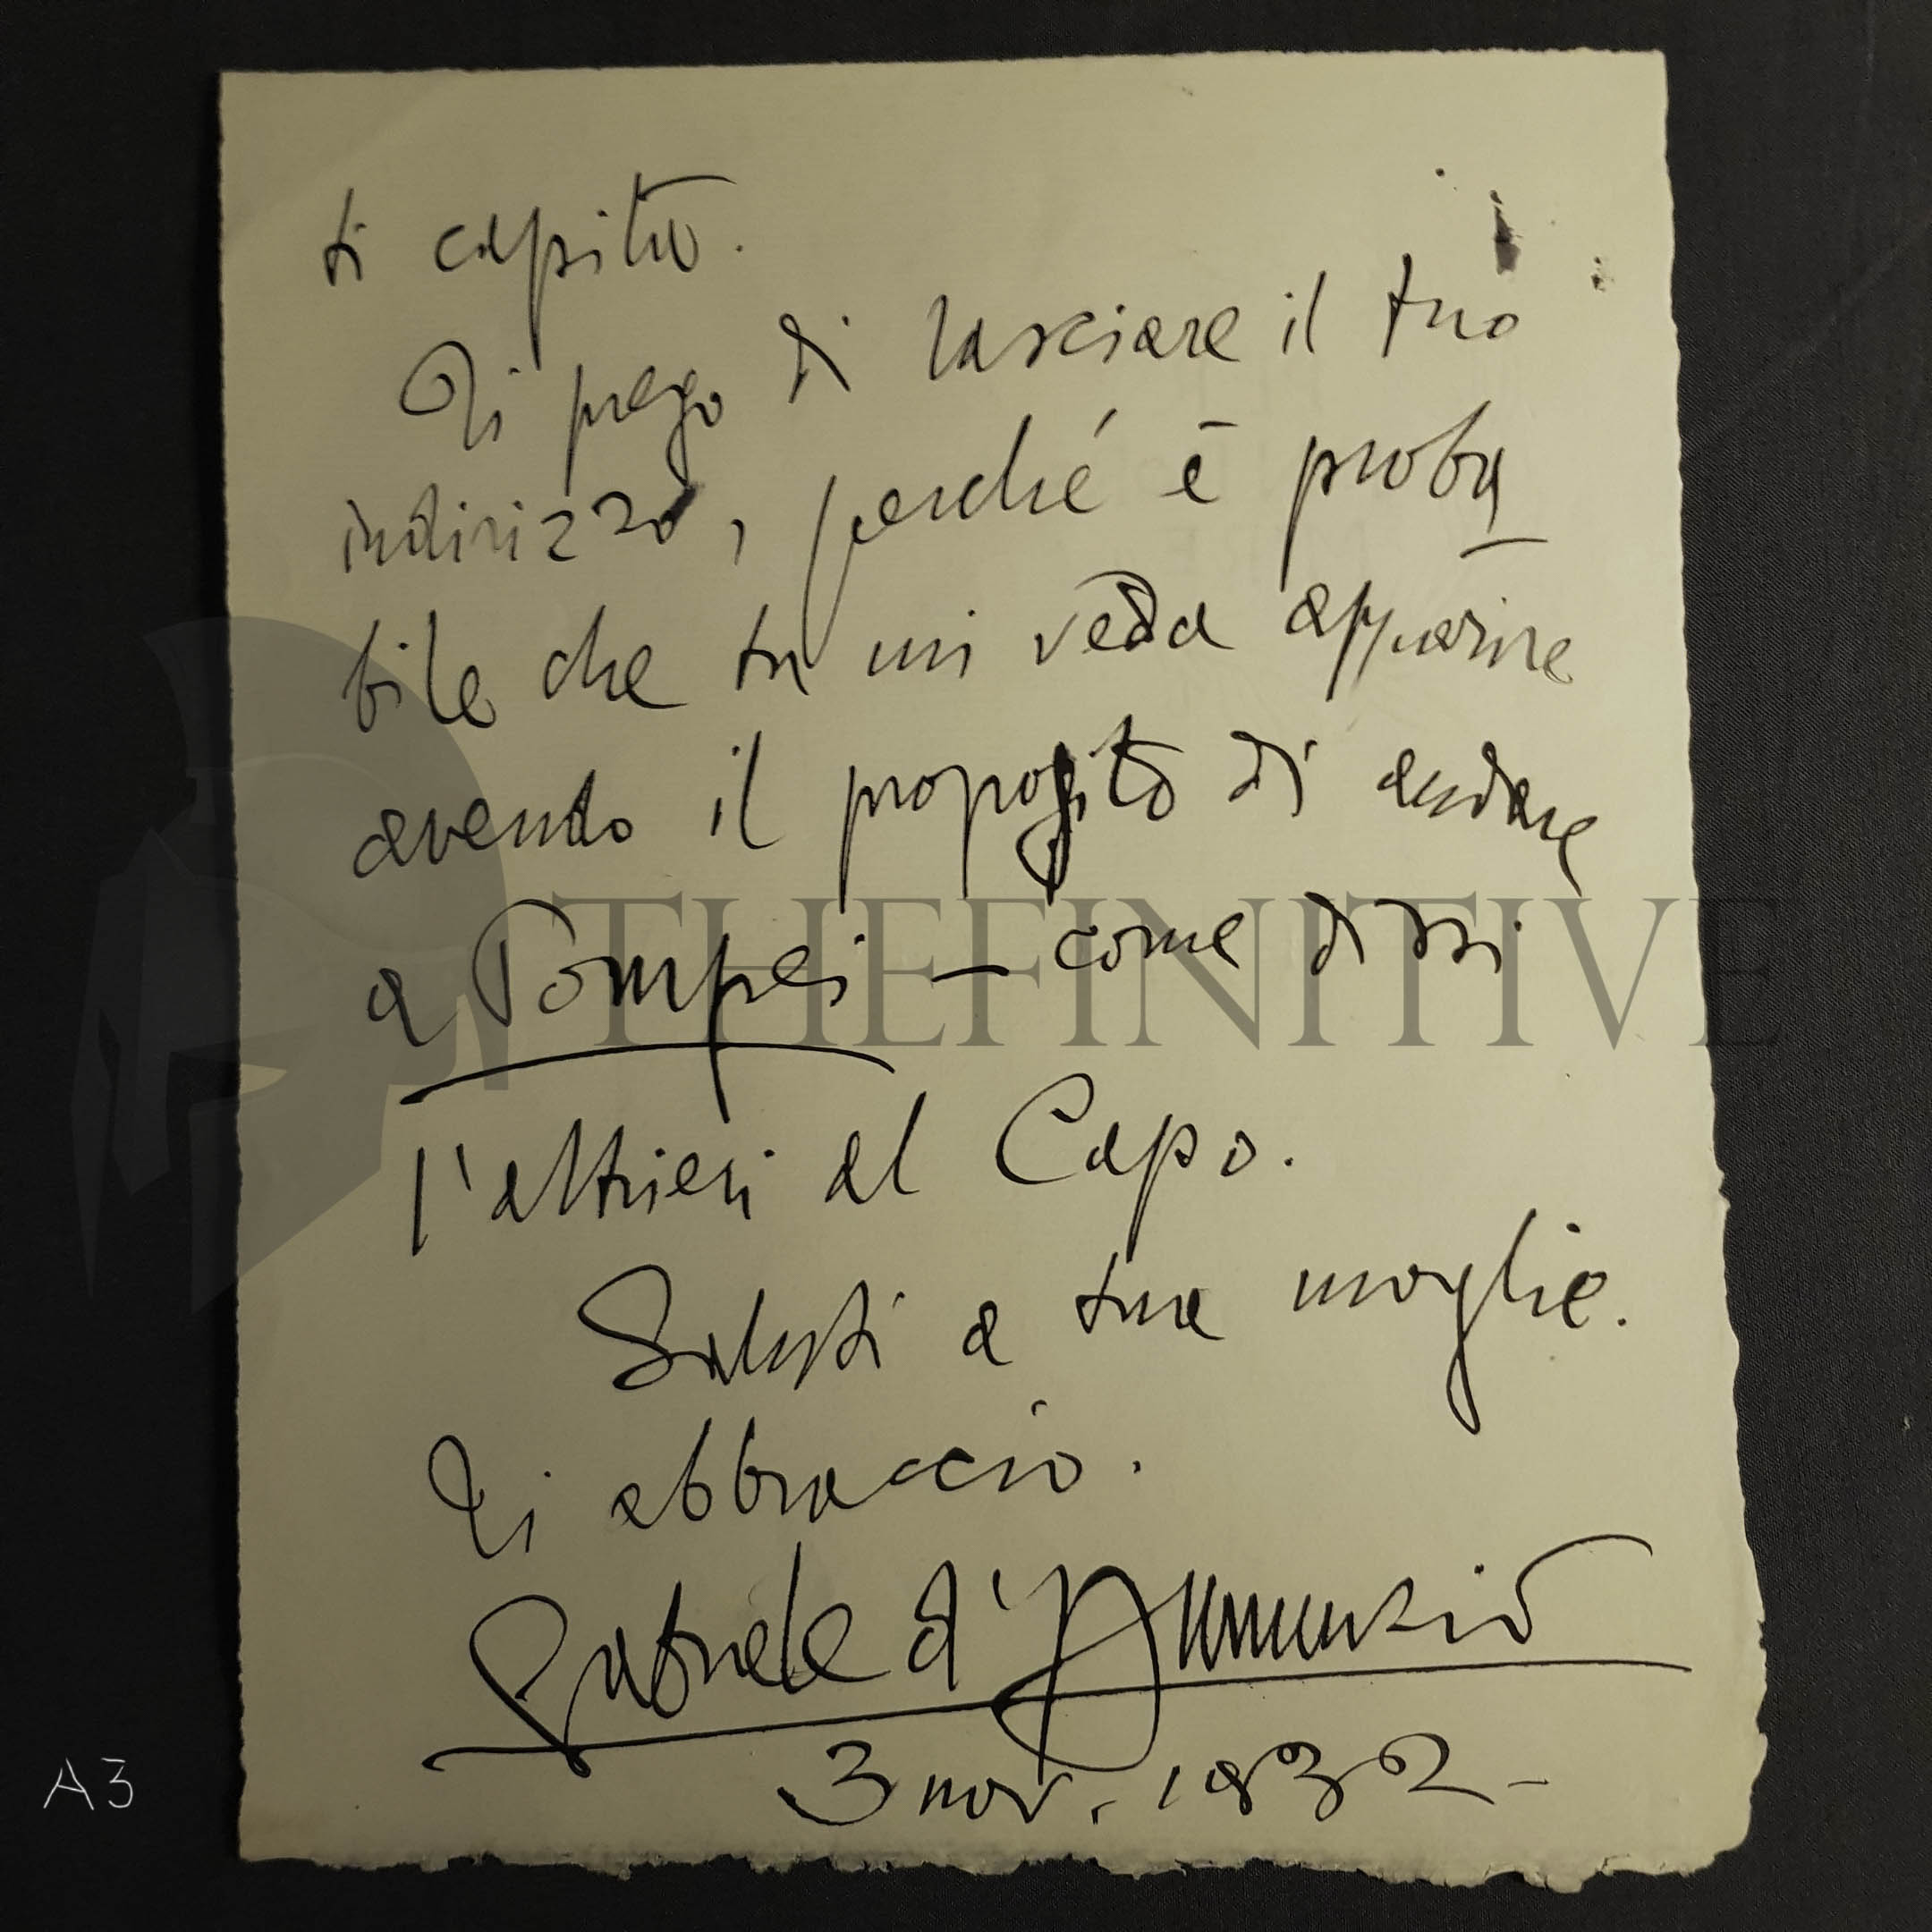 ti capitò.
Ti prego di lasciare il tuo
indirizzo, perché è proba
bile che tu mi veda apparire
avendo il proposito di andare
a Pompei – come dissi
l'altrieri al Capo.
Saluti a tua moglie.
Ti abbraccio.
Gabriele d'Annunzio
3 nov. 1932 –
THEFINITIVE
A3